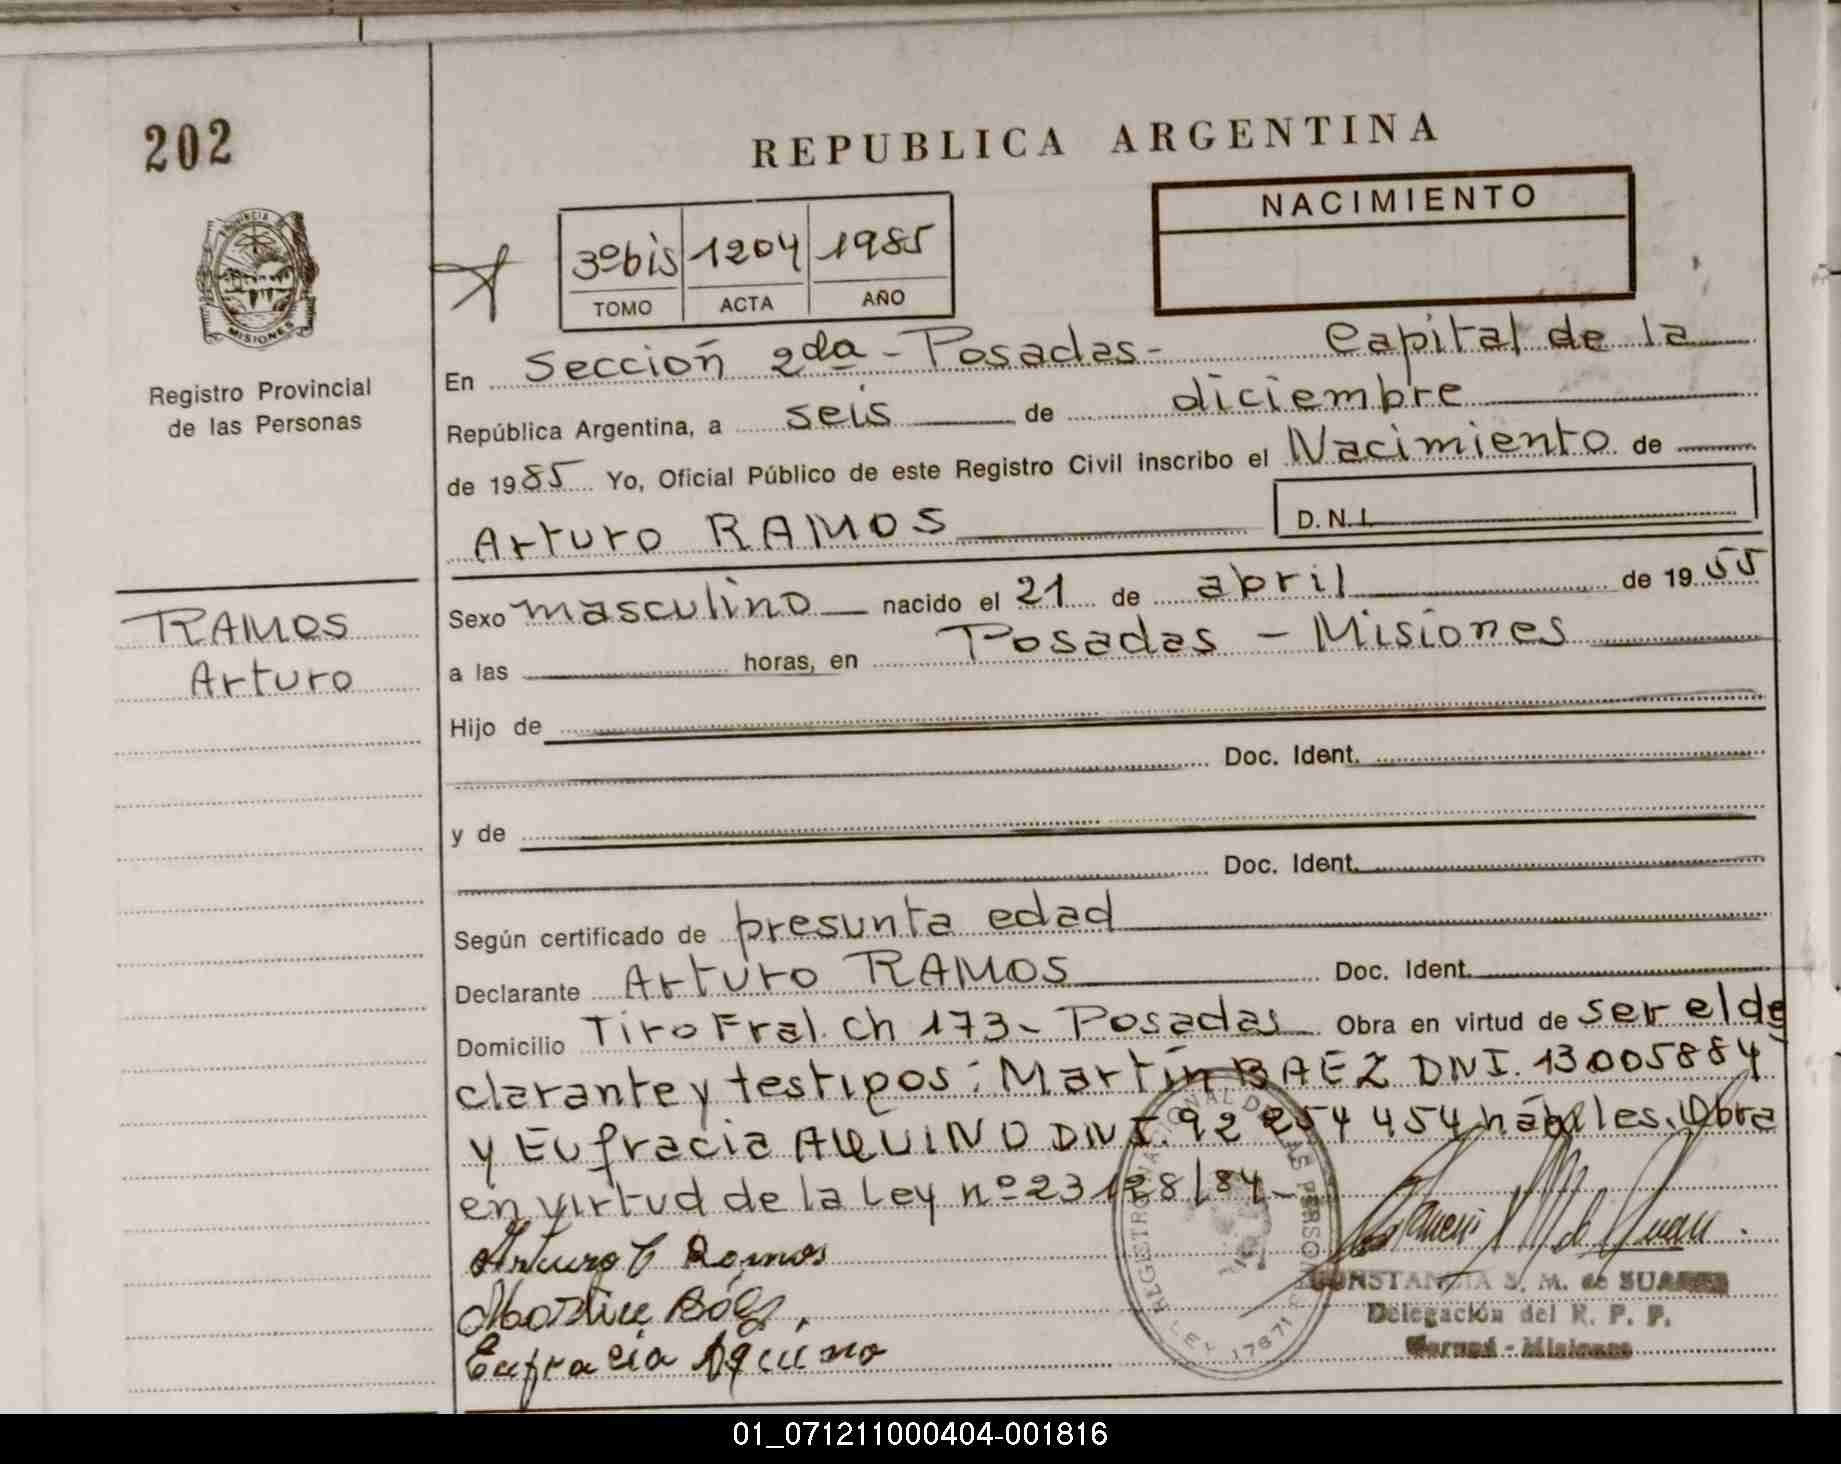 202
REPUBLICA ARGENTINA
NACIMIENTO
3º bis 1204 1985
TOMO ACTA AÑO
PROVINCIA DE
MISIONES
Registro Provincial
de las Personas
En Sección 2da - Posadas - Capital de la
República Argentina, a seis de diciembre
de 1985 Yo, Oficial Público de este Registro Civil inscribo el Nacimiento de
Arturo RAMOS D.N.I.
RAMOS
Arturo
Sexo masculino nacido el 21 de abril de 1955
a las horas, en Posadas - Misiones
Hijo de
Doc. Ident.
y de
Doc. Ident.
Según certificado de presunta edad
Declarante Arturo RAMOS Doc. Ident.
Domicilio Tiro Fral. Ch 173 - Posadas Obra en virtud de ser el de
clarante y testigos: Martín BAEZ DNI. 13005884
y Eufracia AQUINO DNI. 92 254 454 hábiles. Obra
en virtud de la Ley nº 23128/84 -
Arturo Ramos
Eufracia Aquino
REGISTRO NACIONAL DE LAS PERSONAS
LEY 17671
CONSTANCIA S. M. de SUAREZ
Delegación del R. P. P.
- Misiones
01_071211000404-001816